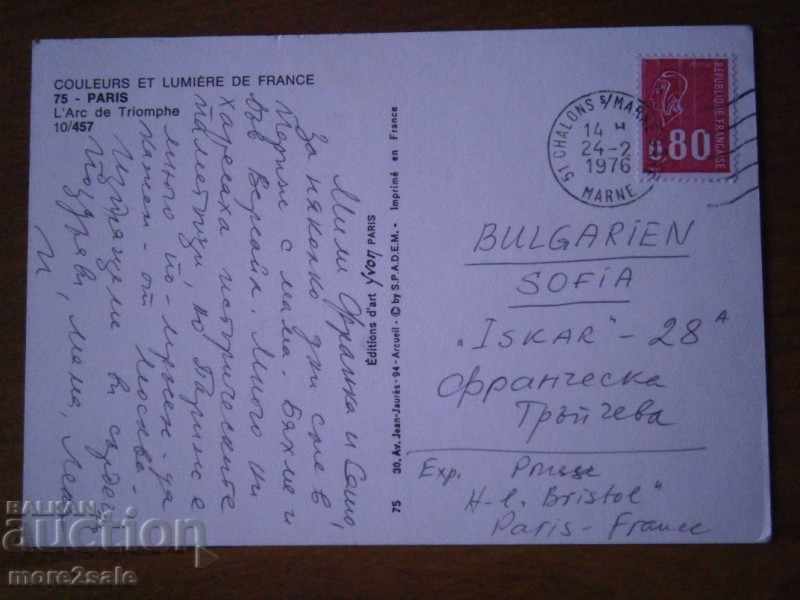 COULEURS ET LUMIÈRE DE FRANCE
75 - PARIS
L'Arc de Triomphe
10/457
Мили и Сашо,
За няколко дни сме в
Париж с мама. Бяхме и
във Версайл. Много ни
харесаха историческите
паметници, но Париж е
много по-мръсен - да
кажем - от Москва.
Изпращаме ви сърдечни
поздрави, Мама,
И
Editions d'art Yvon PARIS
75 30, Av. Jean-Jaurès - 94 - Arcueil - © by S.P.A.D.E.M. - Imprimé en France
51 CHALONS S/MARNE
14 H
24-2
1976
MARNE
REPUBLIQUE FRANCAISE
0.80
BULGARIEN
SOFIA
„ISKAR" - 28 A
Франческа
Тръпчева
Exp.
H-l. Bristol"
Paris - France
BALKAN
auction
more2sale